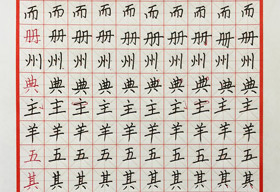 而而而而而而而而而而
册册册册册册册册册册
州州州州州州州州州州
典典典典典典典典典典
主主主主主主主主主主
羊羊羊羊羊羊羊羊羊羊
五五五五五五五五五五
其其其其其其其其其其